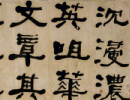 沉浸濃
英咀華
文章其